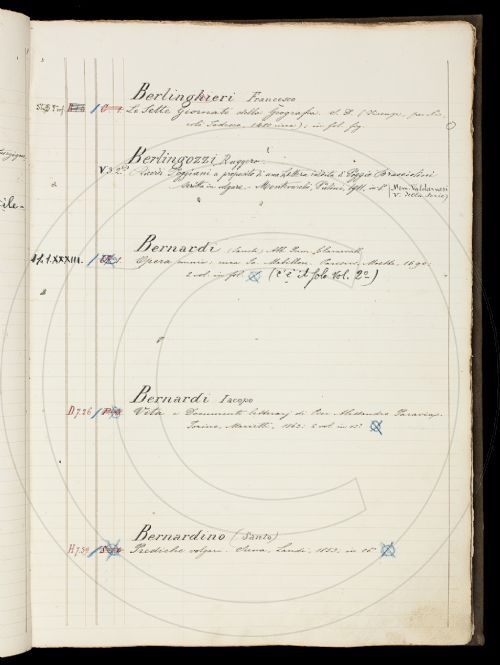 Berlinghieri Francesco
Le Sette Giornate della Geografia. S. D. (Firenze, per Nic-
colò Todesco, 1480 circa), in fol. fig.
Berlingozzi Ruggero
V.3.2º Ricordi Poggiani a proposito di una lettera inedita di Poggio Bracciolini
scritta in volgare. Montevarchi, Pulini, 1911. in 8º (Mem. Valdarnesi
V. della Serie)
Bernardi (Sancti) Abb. Prim. Claravall.
Opera omnia; cura Jo. Mabillon. Parisiis, 1690;
2 vol. in fol. (c'è il solo vol. 2º)
Bernardi Iacopo
D.7.26 Vita e Documenti letterarj di Pier Alessandro Paravia.
Torino, Marietti, 1863: 2 vol. in 12º
Bernardino (Santo)
H.7.39 Prediche volgari. Siena, Landi, 1853; in 16º